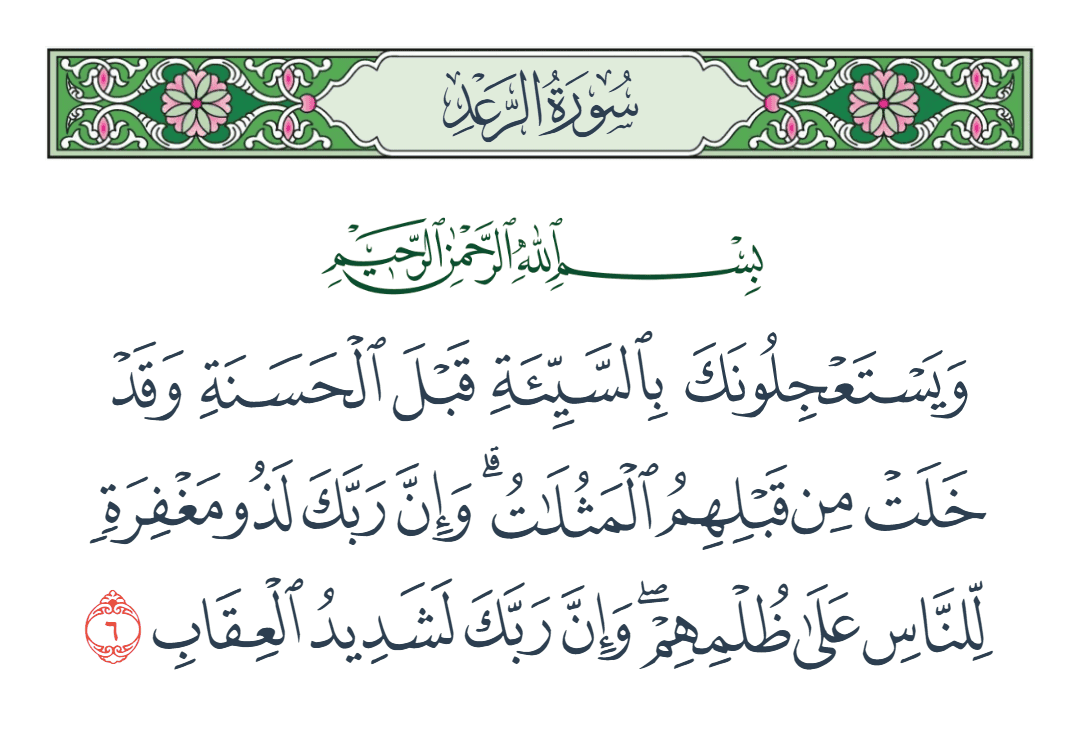 سُورَةُ الرَّعْدِ
بِسْمِ ٱللَّهِ ٱلرَّحْمَٰنِ ٱلرَّحِيمِ
وَيَسْتَعْجِلُونَكَ بِٱلسَّيِّئَةِ قَبْلَ ٱلْحَسَنَةِ وَقَدْ
خَلَتْ مِن قَبْلِهِمُ ٱلْمَثُلَٰتُ ۗ وَإِنَّ رَبَّكَ لَذُو مَغْفِرَةٍ
لِّلنَّاسِ عَلَىٰ ظُلْمِهِمْ ۖ وَإِنَّ رَبَّكَ لَشَدِيدُ ٱلْعِقَابِ ٦